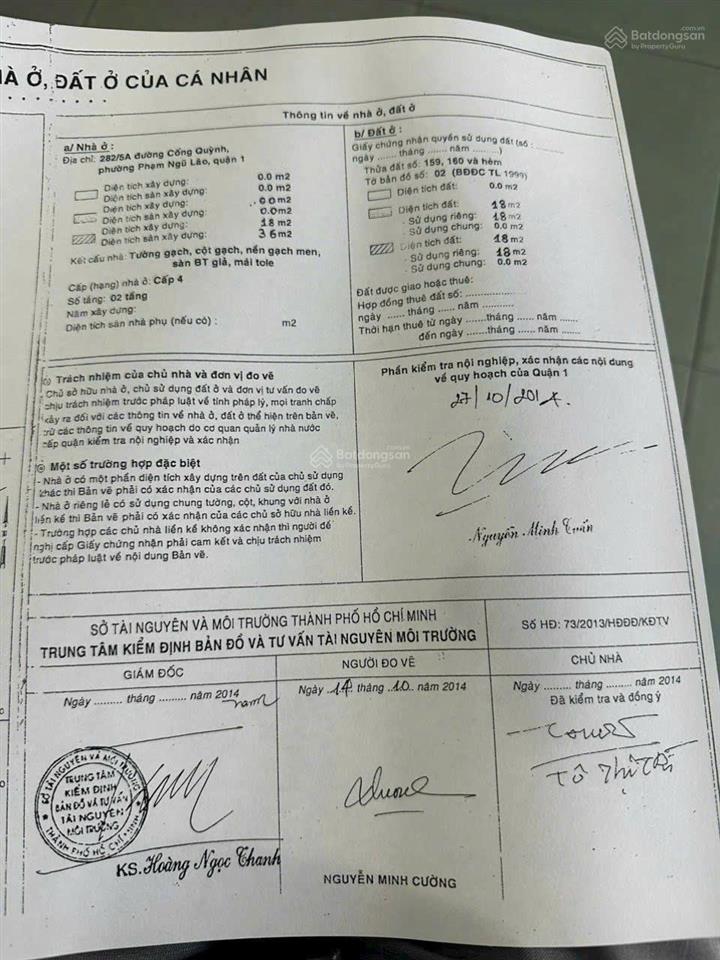 Batdongsan
.com.vn
by PropertyGuru
NHÀ Ở, ĐẤT Ở CỦA CÁ NHÂN
Thông tin về nhà ở, đất ở
a/ Nhà ở :
Địa chỉ: 282/5A đường Cống Quỳnh,
phường Phạm Ngũ Lão, quận 1
Diện tích xây dựng: 0.0 m2
Diện tích sàn xây dựng: 0.0 m2
Diện tích xây dựng: 0.0 m2
Diện tích sàn xây dựng: 0.0 m2
Diện tích xây dựng: 18 m2
Diện tích sàn xây dựng: 36 m2
Kết cấu nhà: Tường gạch, cột gạch, nền gạch men,
sàn BT giả, mái tole
Cấp (hạng) nhà ở: Cấp 4
Số tầng: 02 tầng
Năm xây dựng:
Diện tích sàn nhà phụ (nếu có) : m2
b/ Đất ở :
Giấy chứng nhận quyền sử dụng đất (số : ............
ngày ...... tháng ...... năm .........)
Thửa đất số: 159, 160 và hẻm
Tờ bản đồ số: 02 (BĐĐC TL 1999)
Diện tích đất: 0.0 m2
Diện tích đất: 18 m2
- Sử dụng riêng: 18 m2
- Sử dụng chung: 0.0 m2
Diện tích đất: 18 m2
- Sử dụng riêng: 18 m2
- Sử dụng chung: 0.0 m2
Đất được giao hoặc thuê:
Hợp đồng thuê đất số: ...............
ngày ...... tháng ...... năm .........
Thời hạn thuê từ ngày ......tháng ...... năm ......
đến ngày ......tháng ...... năm ......
Trách nhiệm của chủ nhà và đơn vị đo vẽ
Chủ sở hữu nhà ở, chủ sử dụng đất ở và đơn vị tư vấn đo vẽ
chịu trách nhiệm trước pháp luật về tính pháp lý, mọi tranh chấp
xảy ra đối với các thông tin về nhà ở, đất ở thể hiện trên bản vẽ,
trừ các thông tin về quy hoạch do cơ quan quản lý nhà nước
cấp quận kiểm tra nội nghiệp và xác nhận
Một số trường hợp đặc biệt
- Nhà ở có một phần diện tích xây dựng trên đất của chủ sử dụng
khác thì Bản vẽ phải có xác nhận của các chủ sử dụng đất đó.
- Nhà ở riêng lẻ có sử dụng chung tường, cột, khung với nhà ở
liền kề thì Bản vẽ phải có xác nhận của các chủ sở hữu nhà liền kề.
- Trường hợp các chủ nhà liền kề không xác nhận thì người đề
nghị cấp Giấy chứng nhận phải cam kết và chịu trách nhiệm
trước pháp luật về nội dung Bản vẽ.
Phần kiểm tra nội nghiệp, xác nhận các nội dung
về quy hoạch của Quận 1
27/10/2014.
Nguyễn Minh Tuấn
Batdongsan
.com.vn
by PropertyGuru
SỞ TÀI NGUYÊN VÀ MÔI TRƯỜNG THÀNH PHỐ HỒ CHÍ MINH
TRUNG TÂM KIỂM ĐỊNH BẢN ĐỒ VÀ TƯ VẤN TÀI NGUYÊN MÔI TRƯỜNG
Số HĐ: 73/2013/HĐĐĐ/KĐTV
GIÁM ĐỐC
Ngày ......... tháng ......... năm 2014
SỞ TÀI NGUYÊN VÀ MÔI TRƯỜNG
TRUNG TÂM
KIỂM ĐỊNH
BẢN ĐỒ VÀ TƯ VẤN
TÀI NGUYÊN
MÔI TRƯỜNG
THÀNH PHỐ HỒ CHÍ MINH
KS. Hoàng Ngọc Thanh
NGƯỜI ĐO VẼ
Ngày ..14. tháng ..10.. năm 2014
NGUYỄN MINH CƯỜNG
CHỦ NHÀ
Ngày ......... tháng ......... năm 2014
Đã kiểm tra và đồng ý
Tô Thị